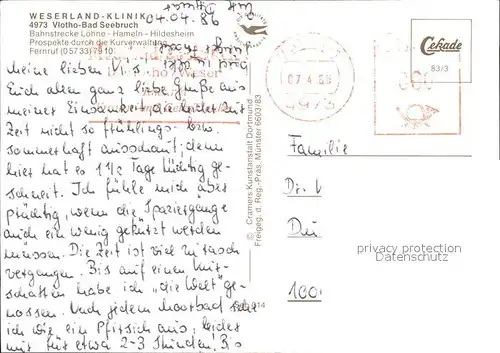 WESERLAND-KLINIK
4973 Vlotho-Bad Seebruch
Bahnstrecke Löhne - Hameln - Hildesheim
Prospekte durch die Kurverwaltung
Fernruf (0 57 33) 79 10
04.04.86
meine lieben
Euch allen ganz liebe Grüße aus
meiner Einsamkeit die leider zur
Zeit nicht so frühlings- bzw.
sommerhaft ausschaut; denn
hier hat es 1 1/2 Tage tüchtig ge-
schneit. Ich fühle mich aber
prächtig, wenn die Spaziergänge
auch ein wenig gekürzt werden
müssen. Die Zeit ist viel zu rasch
vergangen. Bis auf einen Wirt-
schaften habe ich „die Welt" ge-
nossen. Nach jedem Moorbad sehe
ich wie ein Pfirsich aus, leider
nur für etwa 2-3 Stunden! Bis
und
© Cramers Kunstanstalt Dortmund
Freigeg. d. Reg.-Präs. Münster 6603/83
Cekade
83/3
07.4.86
4973
Familie
Dr.
Dü
privacy protection
Datenschutz
100